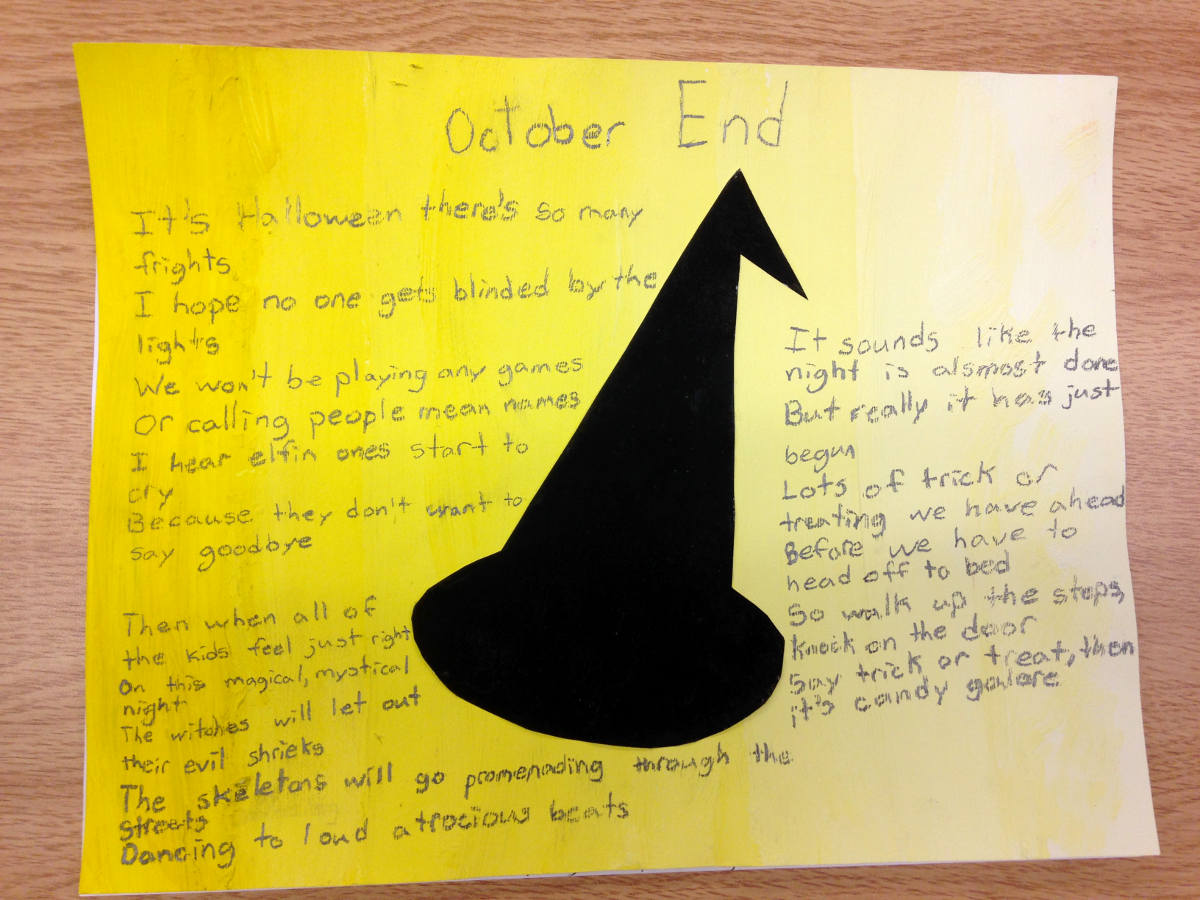 October End
It's Halloween there's so many
frights
I hope no one gets blinded by the
lights
We won't be playing any games
Or calling people mean names
I hear elfin ones start to
cry
Because they don't want to
say goodbye
Then when all of
the kids feel just right
On this magical, mystical
night
The witches will let out
their evil shrieks
The skeletons will go promenading through the
streets
Dancing to loud atrocious beats
It sounds like the
night is alsmost done
But really it has just
begun
Lots of trick or
treating we have ahead
Before we have to
head off to bed
So walk up the steps,
knock on the door
Say trick or treat, then
it's candy galore